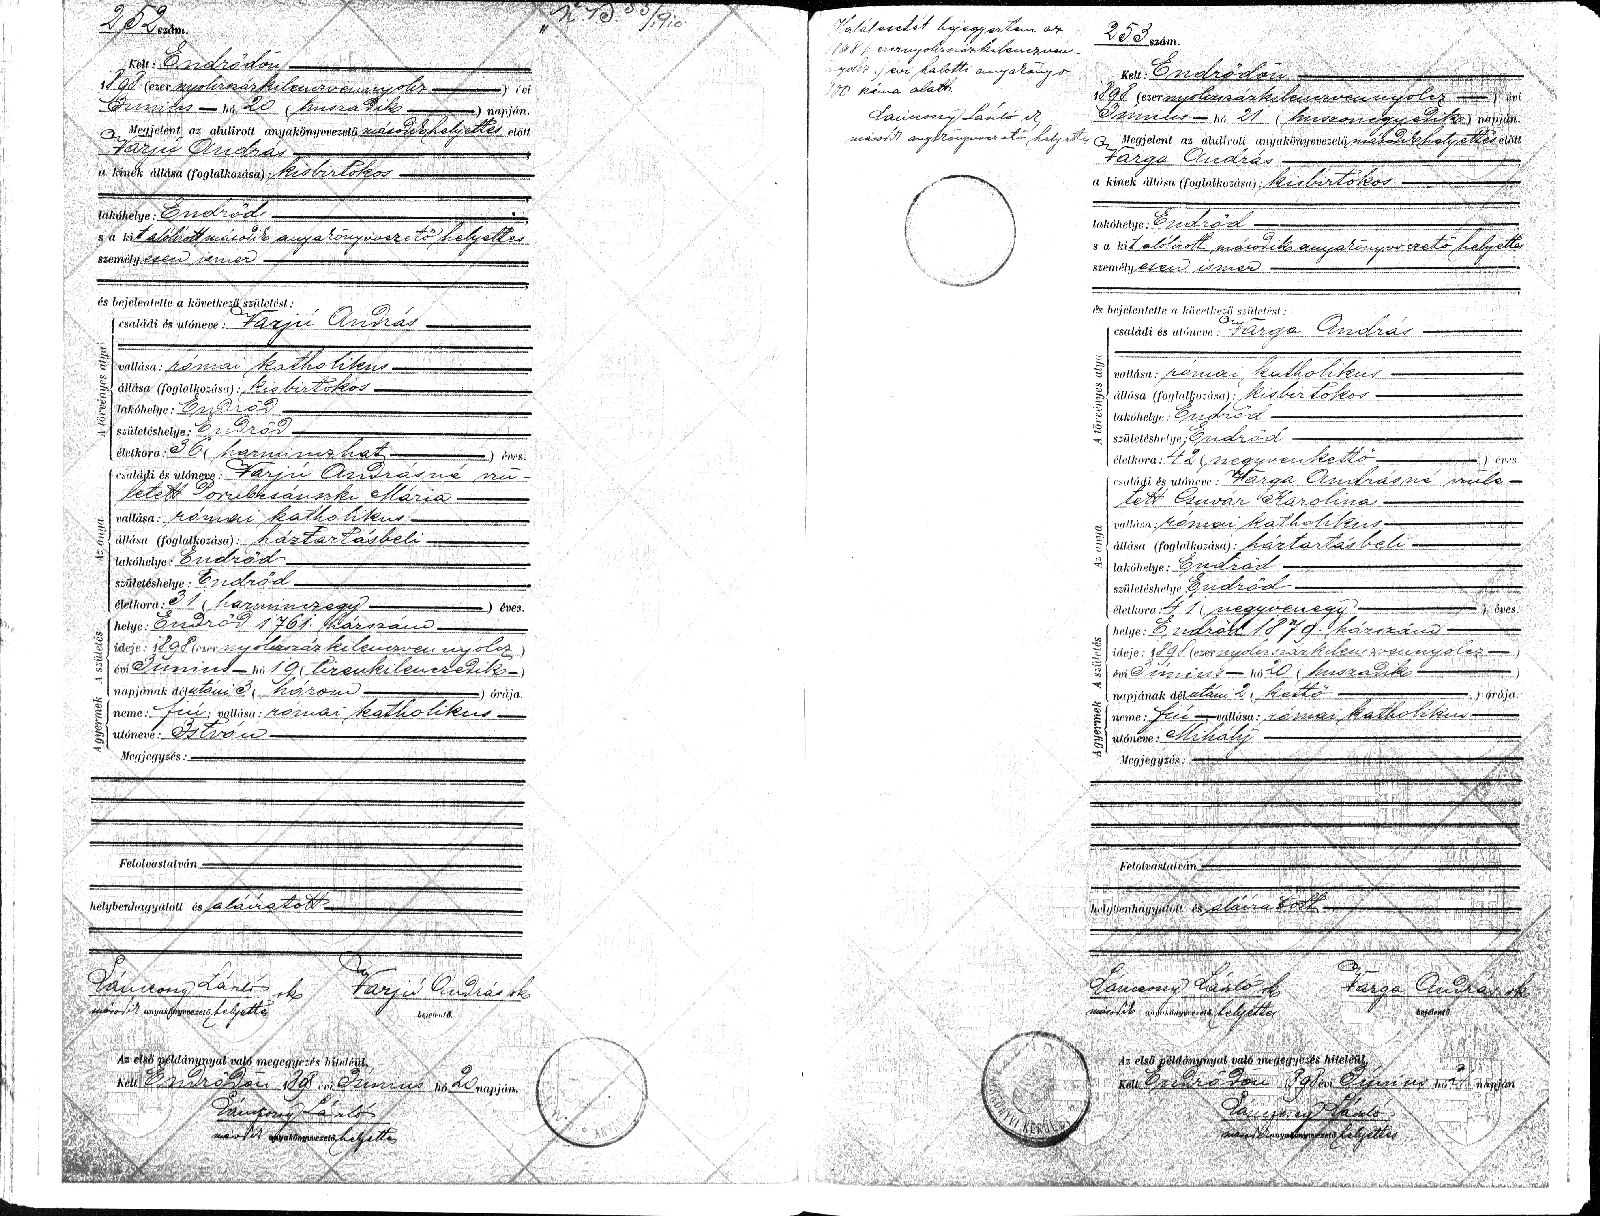 252 szám.
Kelt: Endrődön
1898 (ezer nyolcszázkilenczvennyolcz) évi
Június hó 20 (huszadik) napján.
Megjelent az alulirott anyakönyvvezető második helyettes előtt
Varjú András
a kinek állása (foglalkozása): kisbirtokos
lakóhelye: Endrőd
s a kit alólírott második anyakönyvvezető helyettes
személyesen ismer
és bejelentette a következő születést:
A törvényes atya
családi és utóneve: Varjú András
vallása: római katholikus
állása (foglalkozása): kisbirtokos
lakóhelye: Endrőd
születéshelye: Endrőd
életkora: 36 (harminczhat) éves.
Az anya
családi és utóneve: Varjú Andrásné szü-
letett Mária
vallása: római katholikus
állása (foglalkozása): háztartásbeli
lakóhelye: Endrőd
születéshelye: Endrőd
életkora: 31 (harminczegy) éves.
A születés
helye: Endrőd 1761 házszám
ideje: 1898 (ezer nyolcszázkilenczvennyolcz)
évi Június hó 19 (tizenkilenczedik)
napjának délutáni 3 (három) órája.
A gyermek
neme: fiú; vallása: római katholikus
utóneve: István
Megjegyzés:
Felolvastatván
helybenhagyatott és aláíratott
László sk
második anyakönyvvezető helyettes
Varjú András sk
bejelentő.
Az első példánynyal való megegyezés hiteléül.
Kelt Endrődön 1898 évi Június hó 20 napján.
László
második anyakönyvvezető helyettes
Halálesetét bejegyeztem az
évi halotti anyakönyv
alatt.
László sk
második anyakönyvvezető helyettes
253 szám.
Kelt: Endrődön
1898 (ezer nyolcszázkilenczvennyolcz) évi
Június hó 21 (huszonegyedik) napján.
Megjelent az alulirott anyakönyvvezető második helyettes előtt
Varga András
a kinek állása (foglalkozása): kisbirtokos
lakóhelye: Endrőd
s a kit alólírott második anyakönyvvezető helyettes
személyesen ismer
és bejelentette a következő születést:
A törvényes atya
családi és utóneve: Varga András
vallása: római katholikus
állása (foglalkozása): kisbirtokos
lakóhelye: Endrőd
születéshelye: Endrőd
életkora: 42 (negyvenkettő) éves.
Az anya
családi és utóneve: Varga Andrásné szüle-
tett Karolina
vallása: római katholikus
állása (foglalkozása): háztartásbeli
lakóhelye: Endrőd
születéshelye: Endrőd
életkora: 41 (negyvenegy) éves.
A születés
helye: Endrőd 1879 házszám
ideje: 1898 (ezer nyolcszázkilenczvennyolcz)
évi Június hó 20 (huszadik)
napjának délutáni 2 (kettő) órája.
A gyermek
neme: fiú vallása: római katholikus
utóneve: Mihály
Megjegyzés:
Felolvastatván
helybenhagyatott és aláíratott
László sk
második anyakönyvvezető helyettes
Varga András sk
bejelentő
Az első példánynyal való megegyezés hiteléül.
Kelt Endrődön 1898 évi Június hó 21 napján
László
második anyakönyvvezető helyettes